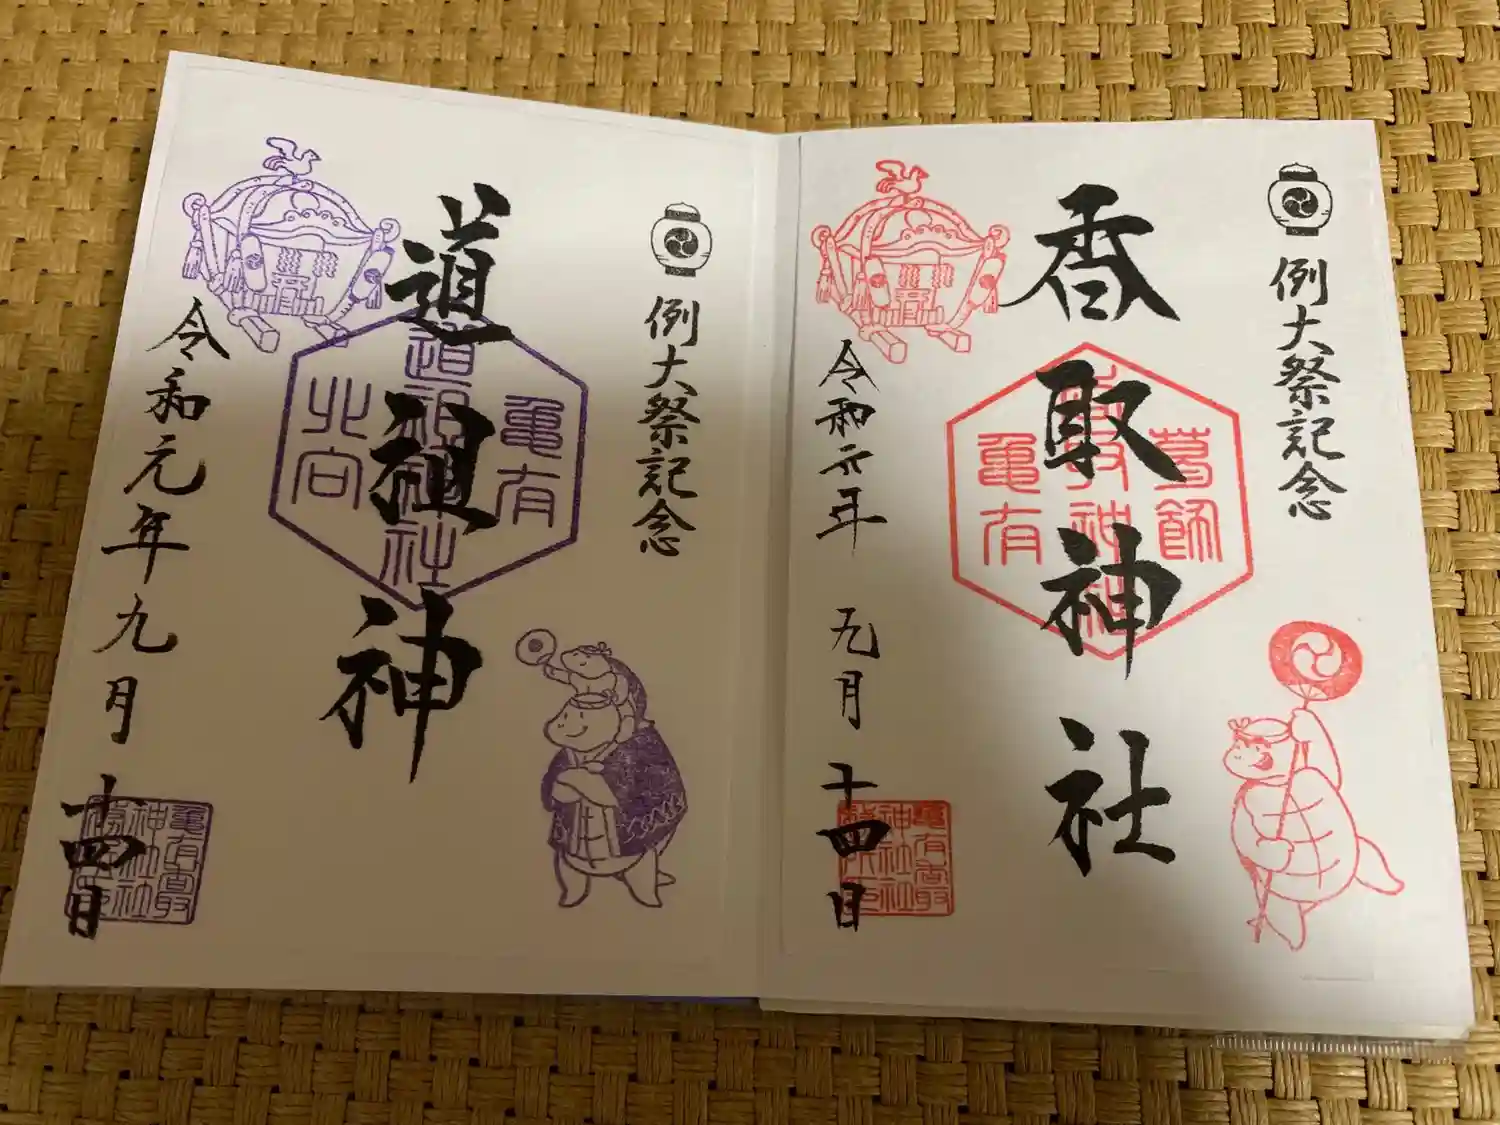 例大祭記念
香取神社
葛飾
香取神社
亀有
令和元年 九月 十四日
例大祭記念
道祖神
亀有
道祖神社
北向
令和元年九月十四日